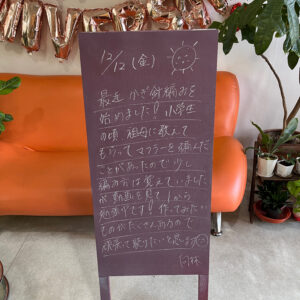 12/12(金)
最近 かぎ針編みを
始めました! 小学生
の頃 祖母に教えて
もらって マフラーを編んだ
ことがあったので 少し
編み方は覚えていました
が 動画を見て 1から
勉強中です! 作ってみたい
ものがたくさんあるので
頑張って編りたいと思います